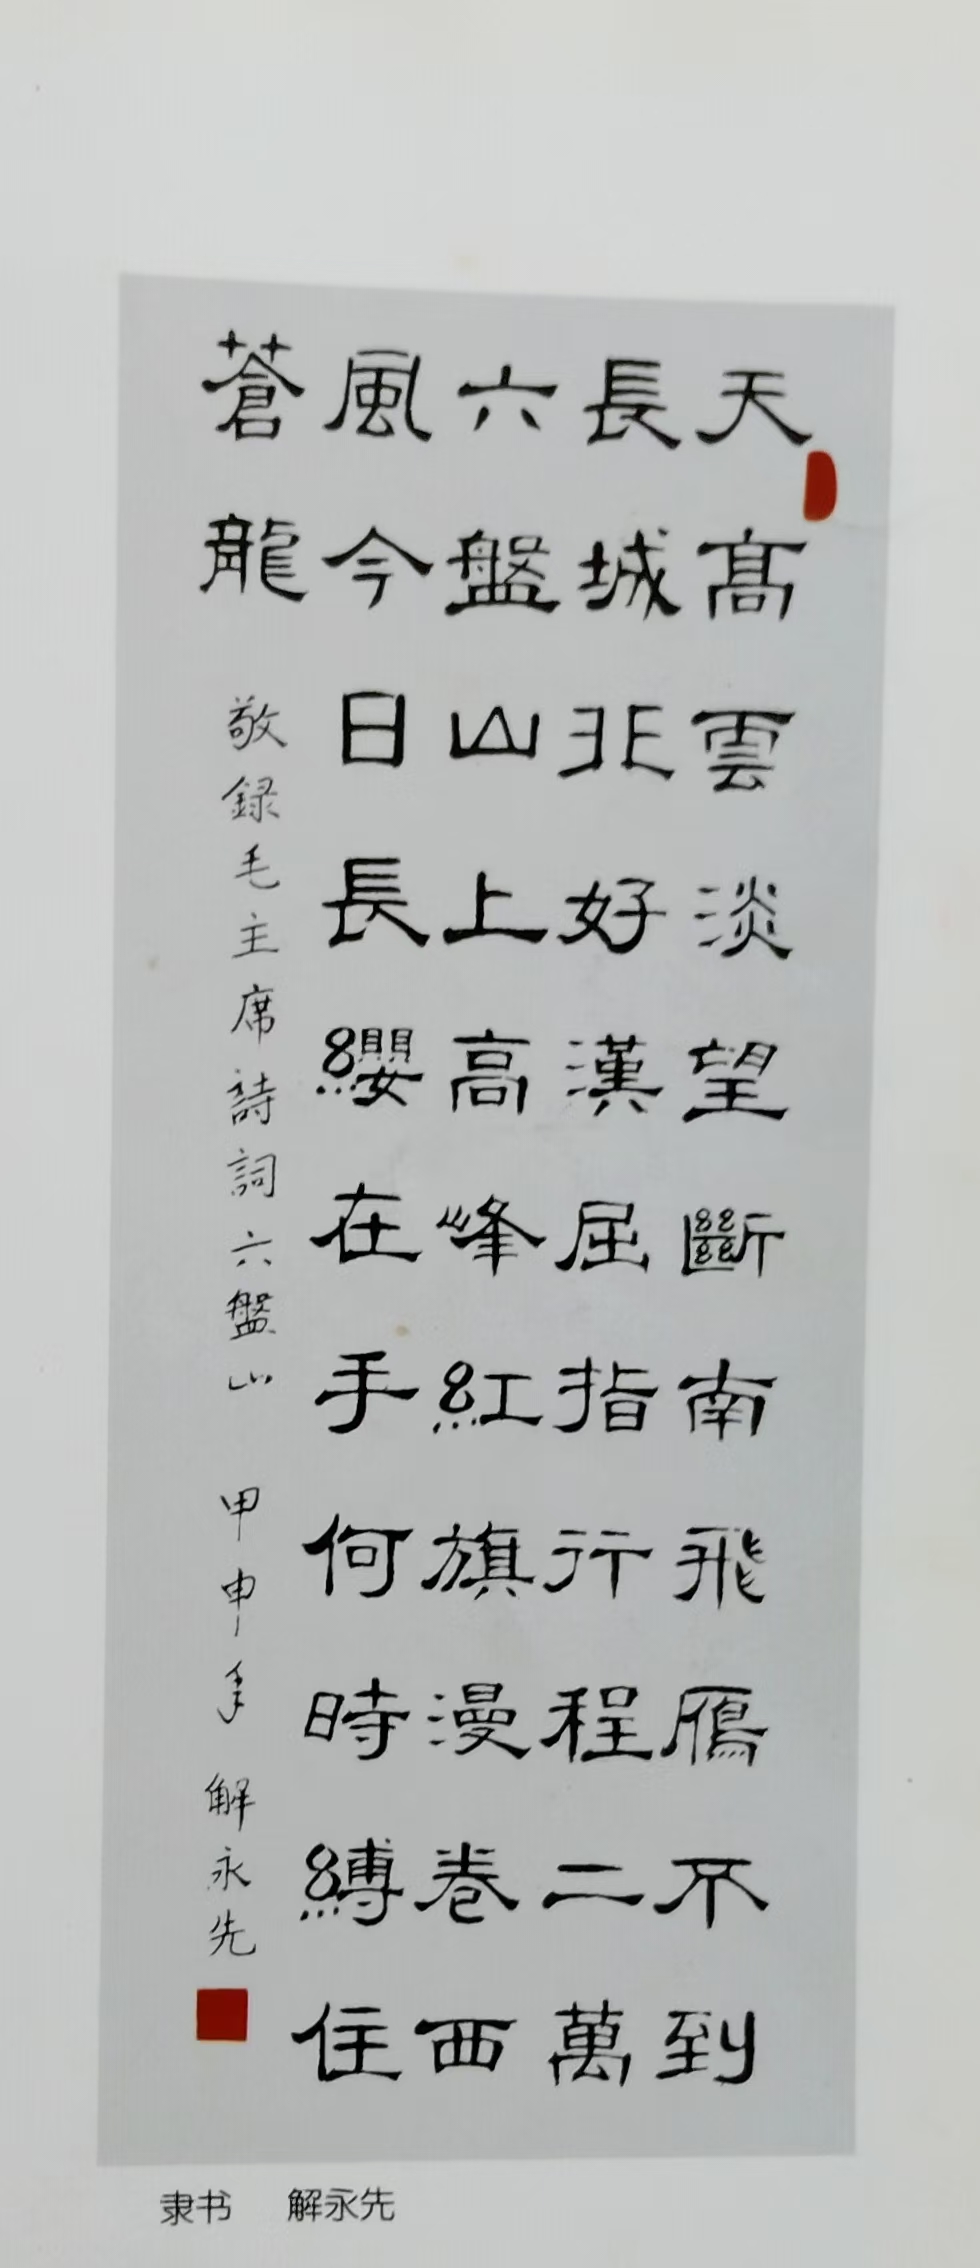 天高雲淡望斷南飛鴈不到
長城非好漢屈指行程二萬
六盤山上高峰紅旗漫卷西
風今日長纓在手何時縛住
蒼龍
敬録毛主席詩詞六盤山 甲申年 解永先
隶书 解永先